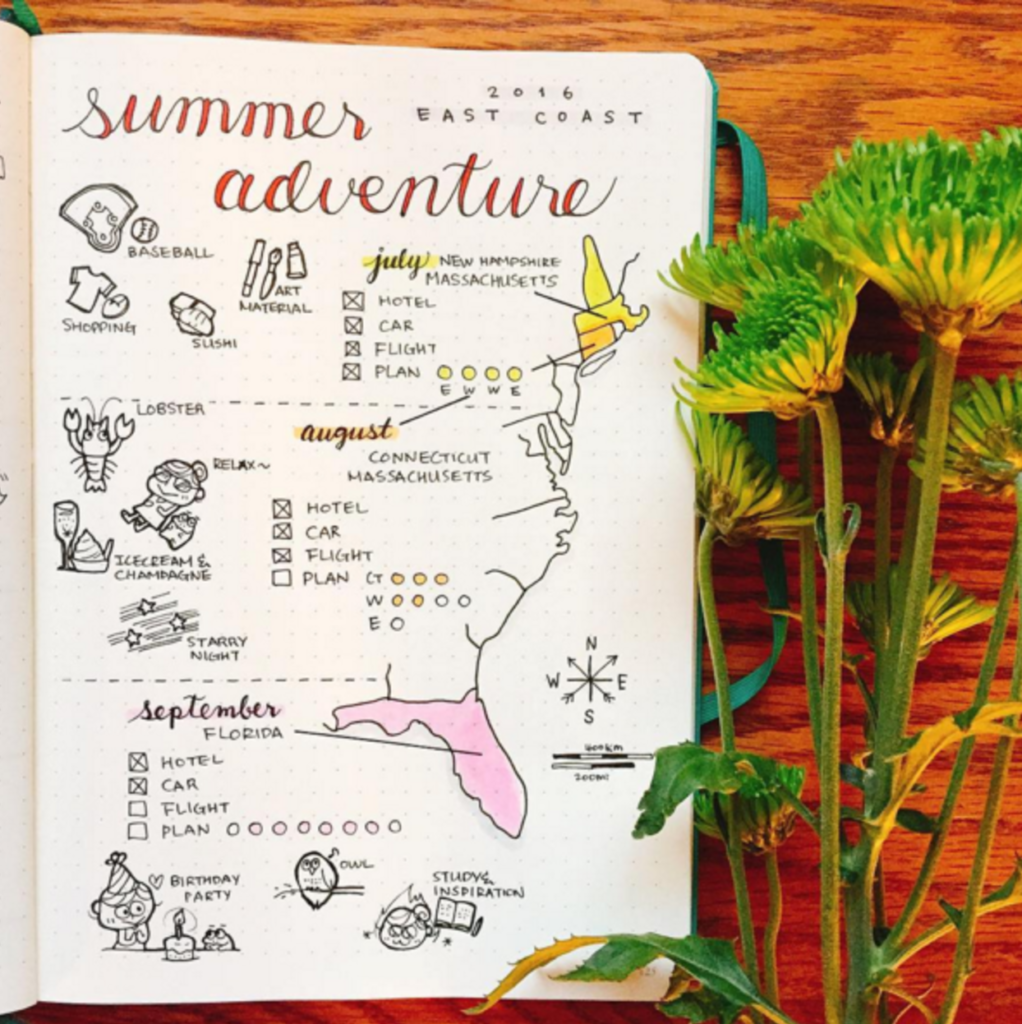 2016
EAST COAST
summer
adventure
BASEBALL
ART
MATERIAL
SHOPPING
SUSHI
july NEW HAMPSHIRE
MASSACHUSETTS
HOTEL
CAR
FLIGHT
PLAN
E W W E
LOBSTER
RELAX~
ICECREAM &
CHAMPAGNE
STARRY
NIGHT
august
CONNECTICUT
MASSACHUSETTS
HOTEL
CAR
FLIGHT
PLAN CT
W
E
N
W E
S
400km
200mi
september
FLORIDA
HOTEL
CAR
FLIGHT
PLAN
BIRTHDAY
PARTY
OWL
STUDY &
INSPIRATION